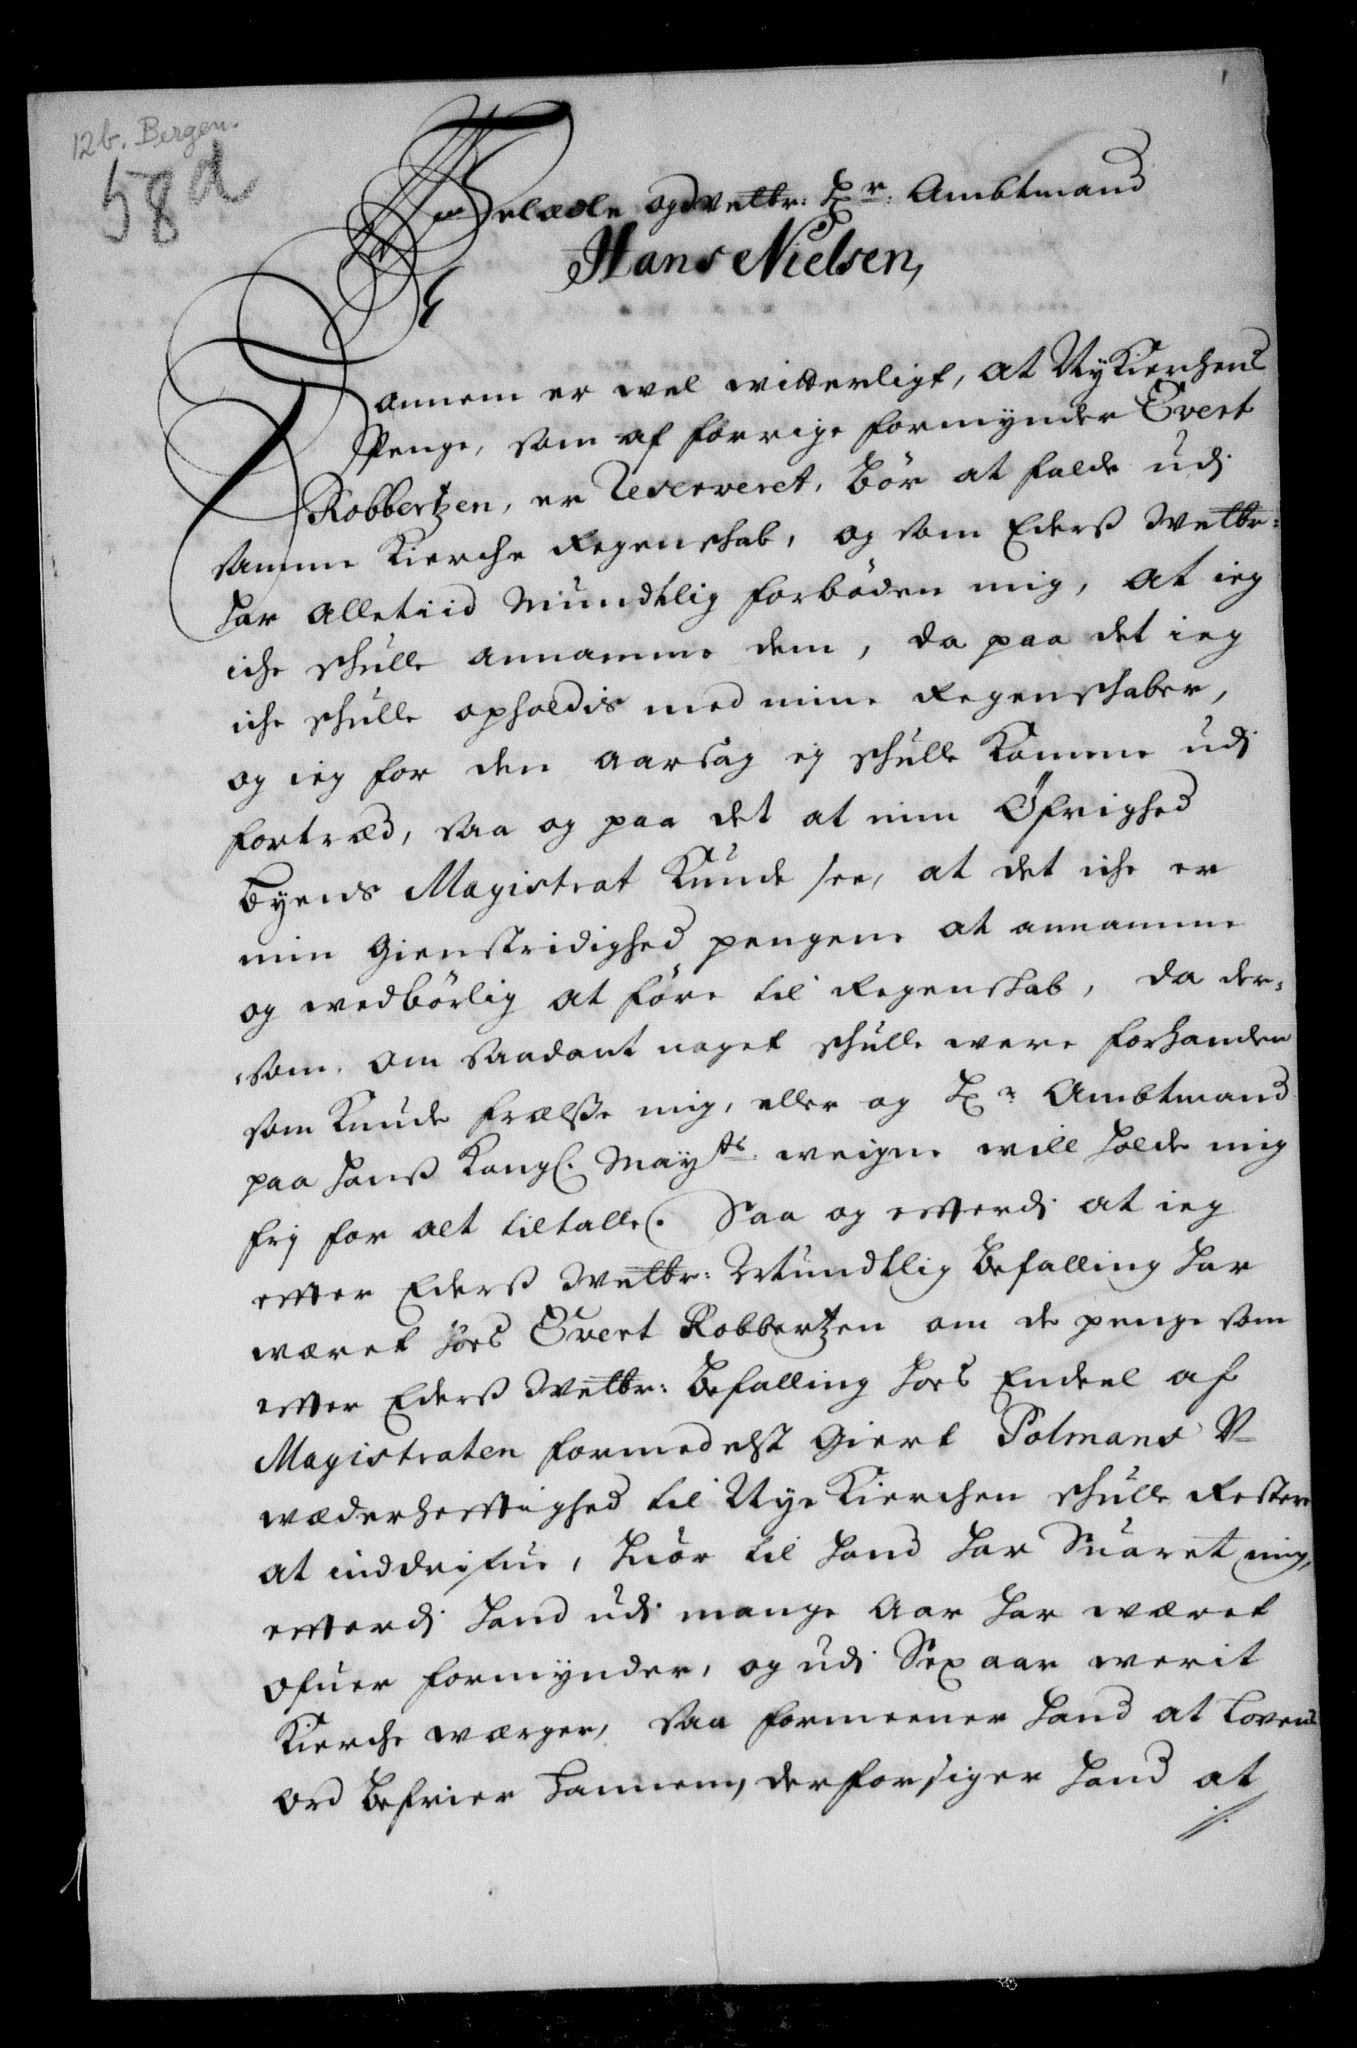 12b. Bergen.
58d
Velædle og Velbr: Hr: Ambtmand
Hans Nielsen,
Hannem er vel witterligt, at NyKierchens
Penge, som af forrige formynder Evert
Robbertzen, er Reserveret, bör at falde udi
samme Kierche Regenschab, og som Ederß Welbr:
har alletiid Mundtlig forböden mig, at ieg
iche schulle annamme dem, da paa det ieg
iche schulle opholdis med mine Regenschaber,
og ieg for den aarsag ej schulle Komme udi
fortræd, saa og paa det at min Øfrighed
Byens Magistrat Kunde see, at det iche er
min Gienstridighed pengene at annamme
og wedbörlig at före til Regenskab, da der-
som, om saadant noget schulle were forhanden
som Kunde frælße mig, eller og Hr Ambtmand
paa Hanß Kongl. Mayts weigne will holde mig
frj for alt tiltalle. Saa og efterdj at ieg
efter Ederß Welbr: Mundtlig Befalling har
wæret hoes Evert Robbertzen om de penge som
efter Ederß Welbr: Befalling hoes Endeel af
Magistraten formedelst Giert Polmans V-
wæderheftighed til Nye Kierchen schulle Restere
at inddrifue, huor til hand har Suaret mig,
efterdj hand udi mange Aar har wæret
ofuer formynder, og udi Sex aar werit
Kierche wærger, saa formeener hand at Lovens
ord befrier hannem, derfor siger hand at
//.